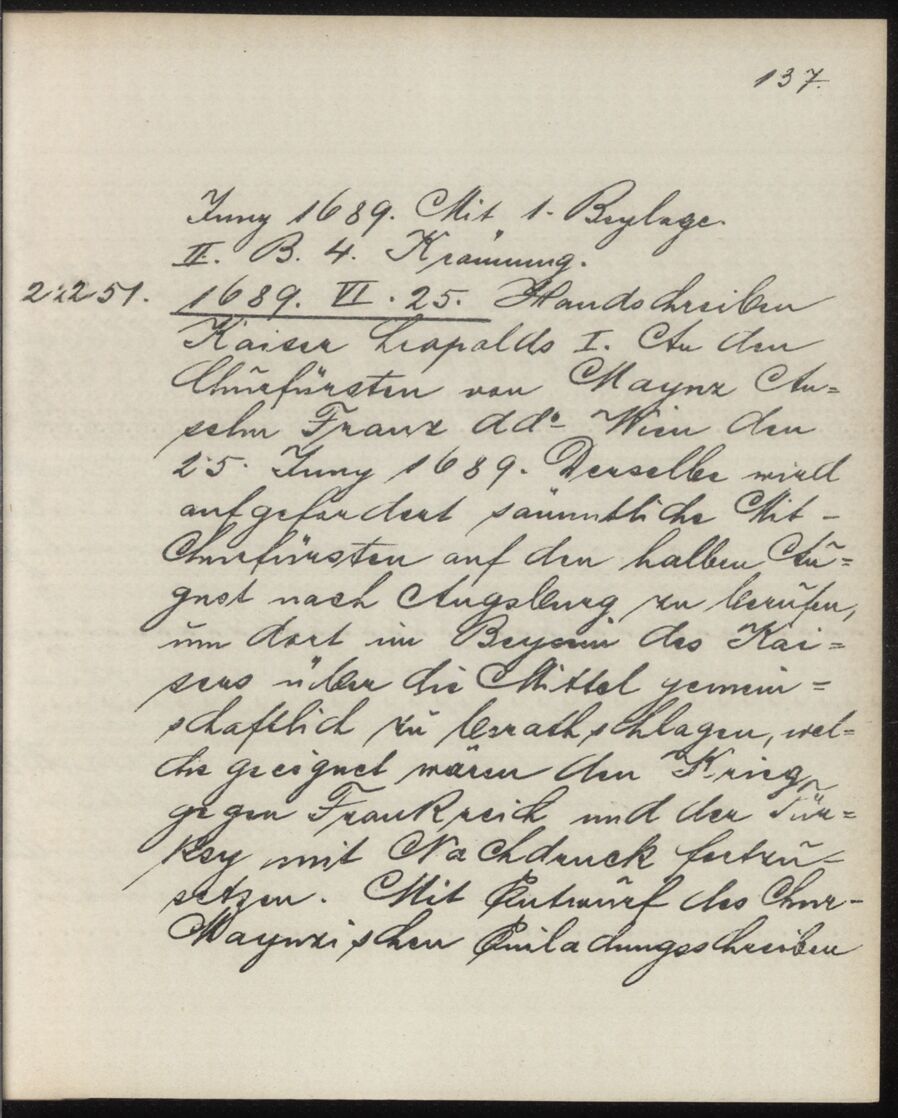 137.
Juny 1689. Mit 1. Beylage.
II. B. 4. Krönung.
22251. 1689. VI. 25. Handschreiben
Kaiser Leopolds I. An den
Churfürsten von Maynz An=
selm Franz ddo Wien den
25. Juny 1689. Derselbe wird
aufgefordert sämmtliche Mit-
Churfürsten auf den halben Au=
gust nach Augsburg zu berufen,
um dort im Beysein des Kai=
sers über die Mittel gemein=
schaftlich zu berathschlagen, wel=
che geeignet wären den Krieg
gegen Frankreich und der Tür=
key mit Nachdruck fortzu-
setzen. Mit Entwurf des Chur-
Maynzischen Einladungsschreiben